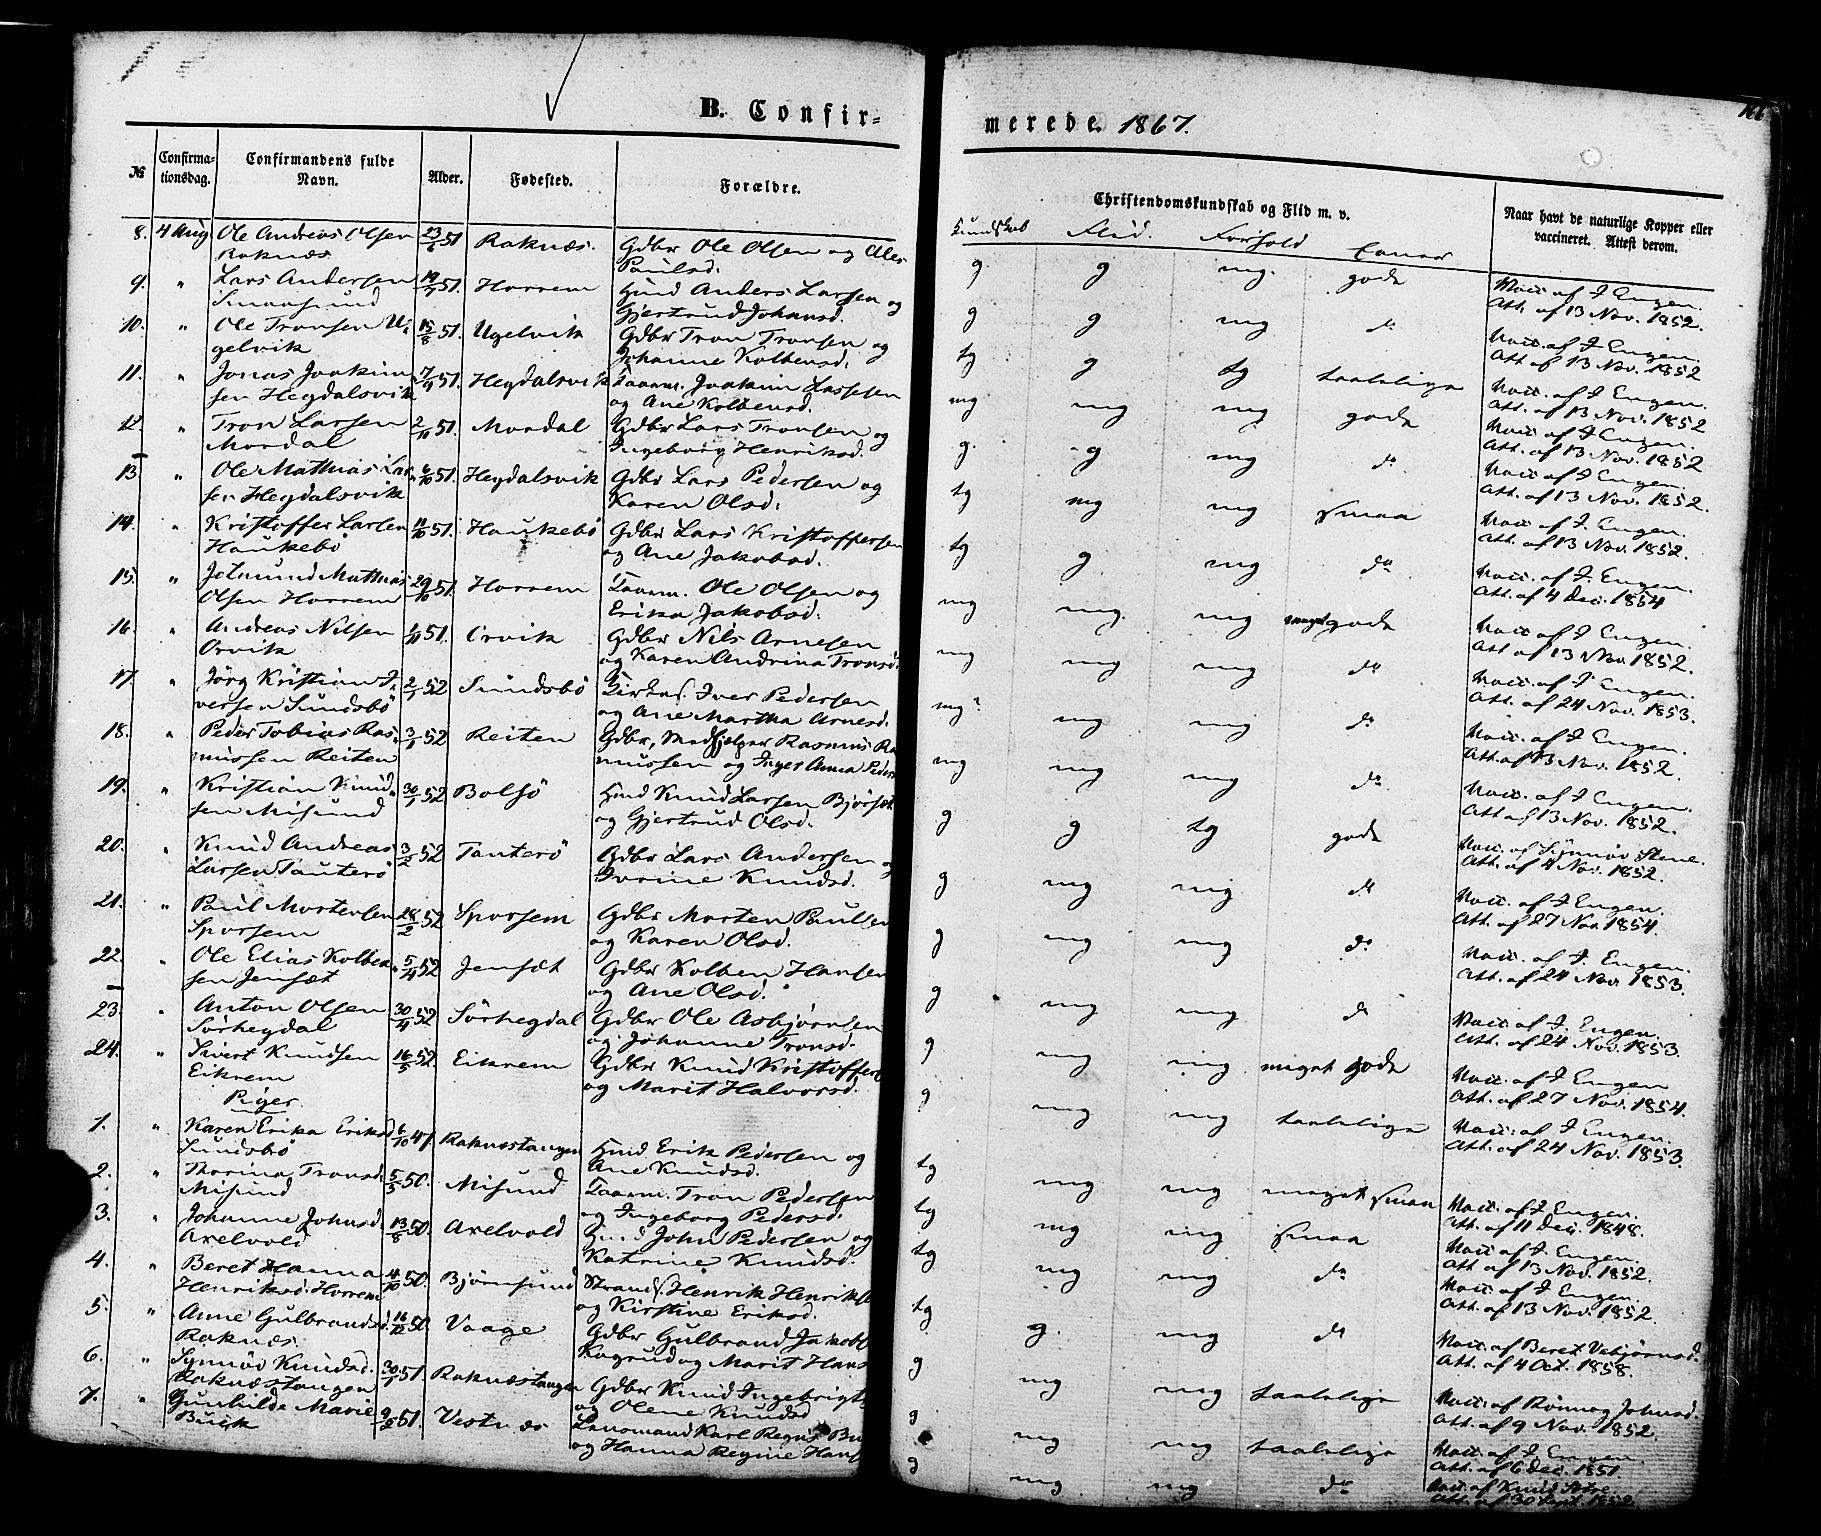 B. Confir-
№
Confirma-
tionsdag.
Confirmandens fulde
Navn.
Alder.
Fødested.
Forældre.
8. 4 Aug Ole Andreas Olsen 23/6 51 Raknæs. Gdbr Ole Olsen og
Raknæs Paulsd.
9. " Lars Andersen 19/7 51. Horrem Hmd Anders Larsen og
Gjertrud Johansd.
10. " Ole Tronsen U- 15/8 51. Ugelvik Gdbr Tron Tronsen og
gelvik Johanne Kolbensd.
11. " Jonas Joakim- 17/9 51. Hegdalsvik Taarm. Joakim Lassesen
sen Hegdalsvik og Ane Kolbensd.
12. " Tron Larsen 2/10 51. Mordal Gdbr Lars Tronsen og
Mordal Ingeborg Henriksd.
13 " Ole Mathias Lar- 6/10 51. Hegdalsvik Gdbr Lars Pedersen og
sen Hegdalsvik Karen Olsd.
14. " Kristoffer Larsen 11/10 51. Haukebö Gdbr Lars Kristoffersen
Haukebö og Ane Jakobsd.
15. " Mathias 29/10 51. Horrem Taarm. Ole Olsen og
Olsen Horrem Erika Jakobsd.
16. " Andreas Nilsen 51. Orvik Gdbr Nils Arnesen
Orvik og Karen Andrina Tronsd.
17. " Jörg Kristian I- 2/1 52 Sundsbö Iver Pedersen
versen Sundsbö og Ane Martha Arnesd.
18. " Peder Tobias Ras- 3/1 52 Reiten Gdbr, Medhjelper Rasmus Ra
mussen Reiten mussen og Inger Anna Peders
19. " Kristian Knud- 30/1 52 Bolsö Hmd Knud Larsen
sen Misund og Gjertrud Olsd.
20. " Knud Andreas 3/2 52 Tauterö Gdbr Lars Andersen og
Larsen Tauterö Ivrine Knudsd.
21. " Paul Mortensen 28/2 52 Sporsem Gdbr Morten Paulsen
Sporsem og Karen Olsd.
22. " Ole Elias Kolben- 5/4 52 Jemsæt Gdbr Kolben Hansen
sen Jemsæt og Ane Olsd.
23. " Anton Olsen 30/4 52 Sörhegdal Gdbr Ole Asbjörnsen
Sörhegdal og Johanne Tronsd.
24. " Sivert Knudsen 16/5 52. Eikrem Gdbr Knud Kristoffers
Eikrem og Marit Halvorsd.
Piger.
1. " Karen Erika Eriksd 6/10 47. Raknæstangen Hmd Erik Pedersen og
Sundsbö Ane Knudsd.
2. " Thorina Tronsd. 5/5 50. Misund Taarm. Tron Pedersen
Misund og Ingeborg Pedersd.
3. " Johanne Johnsd. 13/8 50. Axelvold Hmd John Pedersen og
Axelvold Katrine Knudsd.
4. " Beret Hanna 4/10 50. Björnsund Strands. Henrik Henrikse
Henriksd. Horrem og Kirstine Eriksd.
5. " Anne Gulbrandsd. 16/12 50. Vaage Gdbr Gulbrand Jakobs
Raknæs. og Marit Hans
6. " Synnöv Knudsd. 30/1 51. Raknæstangen Gdbr Knud Ingebrigts
Raknæstangen og Olene Knudsd
7. " Gunhilde Marie 51. Vestnæs Lensmand Karl
og Hanna Regine Hans
merede. 1867.
Christendomskundskab og Flid m. v.
Naar havt de naturlige Kopper eller
vaccineret. Attest derom.
Kundskab Flid. Forhold Evner
g. g mg. gode Vacc. af J Engen.
Att. af 13 Nov. 1852.
g g mg do Vacc. af J Engen.
Att. af 13 Nov. 1852
tg g tg taalelige Vacc. af J Engen.
Att. af 13 Nov. 1852
mg mg mg gode Vacc. af J Engen.
Att. af 13 Nov. 1852
g. g mg do. Vacc. af J Engen.
Att. af 13 Nov. 1852.
tg mg mg smaa Vacc. af J. Engen.
Att. af 13 Nov. 1852.
tg g. mg do Vacc. af J. Engen.
Att. af 4 Dec. 1854
mg mg. mg meget gode Vacc. af J Engen.
Att af 13 Nov 1852.
mg mg mg do Vacc. af J Engen.
Att. af 24 Nov. 1853.
mg? mg mg do Vacc. af J Engen.
Att. af 13 Nov. 1852.
mg mg mg do. Vacc. af J Engen.
Att af 13 Nov. 1852.
g g tg gode Vacc. af Synnöv Stene.
Att. af 4 Nov. 1852.
g mg mg do Vacc. af J Engen.
Att. af 27 Nov 1854.
g mg mg do Vacc. af J. Engen.
Att. af 24 Nov. 1853.
g mg mg do Vacc. af J. Engen.
Att. af 24 Nov. 1853.
g mg mg meget gode Vacc. af J Engen
Att. af 27 Nov. 1854.
g mg mg taalelige Vacc. af J Engen.
Att. af 24 Nov. 1853.
tg mg mg meget smaa Vacc. af J Engen.
Att. af 11 Dec. 1848.
tg mg mg smaa Vacc. af J. Engen.
Att af 13 Nov. 1852.
tg mg mg do Vacc. af J. Engen.
Att. af 13 Nov. 1852.
tg g. mg do Vacc. af Beret Vebjörnsd.
Att. af 4 Oct. 1858.
g mg mg taalelige Vacc. af Rönnog Johnsd.
Att. af 9 Nov. 1852.
g mg mg taalelige Vacc. af J Engen.
Att. af 6 Dec. 1851
g mg mg do Vacc. af Knud
Att. af 30 Sept. 1852